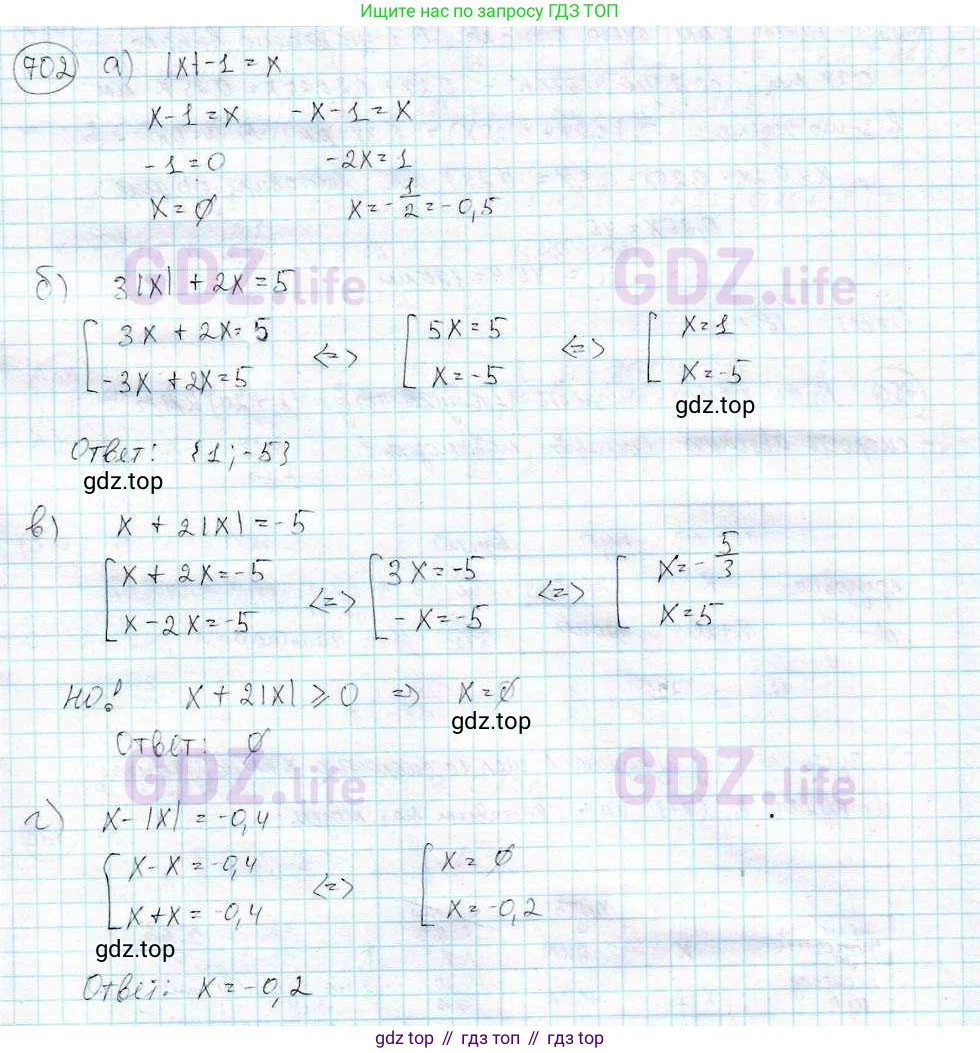 Ищите нас по запросу ГДЗ ТОП
702 а) |x|-1=x
x-1=x   -x-1=x
-1=0   -2x=1
x=∅   x=-1/2=-0,5
GDZ.life GDZ.life
б) 3|x|+2x=5
[3x+2x=5 <=> [5x=5 <=> [x=1
-3x+2x=5   x=-5   x=-5
gdz.top
Ответ: {1;-5}
gdz.top
в) x+2|x|=-5
[x+2x=-5 <=> [3x=-5 <=> [x=-5/3
x-2x=-5   -x=-5   x=5
НО! x+2|x|≥0 => x=∅
gdz.top
Ответ: ∅
GDZ.life GDZ.life
г) x-|x|=-0,4
[x-x=-0,4 <=> [x=∅
x+x=-0,4   x=-0,2
gdz.top
Ответ: x=-0,2
gdz.top // гдз топ // гдз.топ